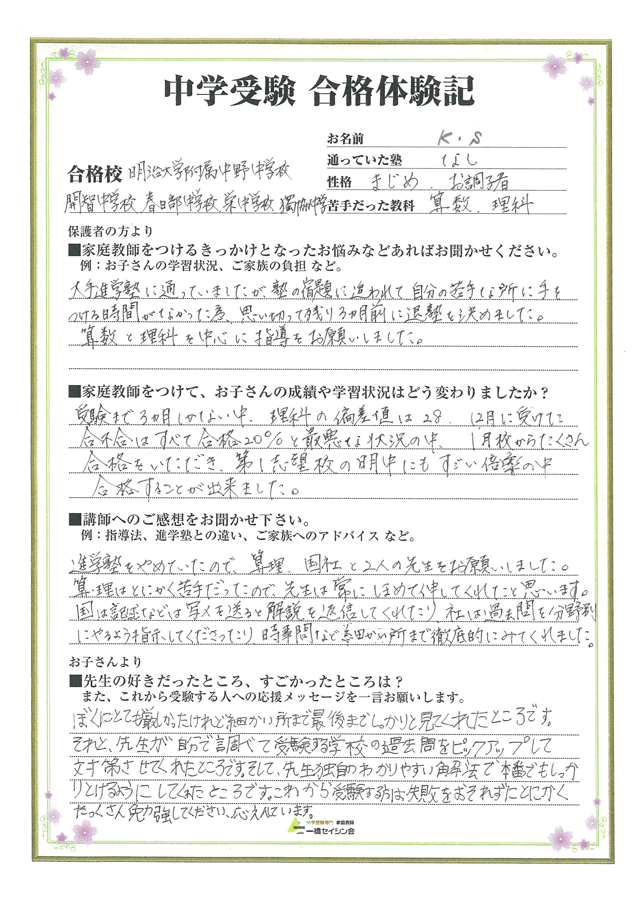 中学受験 合格体験記
お名前 K.S
通っていた塾 なし
合格校 明治大学付属中野中学校
性格 まじめ、お調子者
開智中学校 春日部中学校 栄中学校 獨協中学
苦手だった教科 算数、理科
保護者の方より
■家庭教師をつけるきっかけとなったお悩みなどあればお聞かせください。
例：お子さんの学習状況、ご家族の負担 など。
大手進学塾に通っていましたが塾の宿題に追われて自分の苦手な所に手を
つける時間がなかった為、思い切って残り3ヵ月前に退塾を決めました。
算数と理科を中心に指導をお願いしました。
■家庭教師をつけて、お子さんの成績や学習状況はどう変わりましたか？
受験まで3ヵ月しかない中、理科の偏差値は28、12月に受けた
合不合はすべて合格20%と最悪な状況の中、1月校からたくさん
合格をいただき、第1志望校の明中にもすごい倍率の中
合格することが出来ました。
■講師へのご感想をお聞かせ下さい。
例：指導法、進学塾との違い、ご家族へのアドバイス など。
進学塾をやめていたので、算理、国社と2人の先生をお願いしました。
算理はとにかく苦手だったので、先生は常にほめて伸してくれたと思います。
国は記述などは写メを送ると解説を返信してくれたり、社は過去問を分野別
にやるよう指示してくださったり、時事問など細かい所まで徹底的にみてくれました。
お子さんより
■先生の好きだったところ、すごかったところは？
また、これから受験する人への応援メッセージを一言お願いします。
ぼくにとても厳しかったけれど細かい所まで最後までしっかりと見てくれたところです。
それと、先生が自分で調べて受験する学校の過去問をピックアップして
対策させてくれたところです。そして、先生独自のわかりやすい解法で本番でもしっか
りとけるようにしてくれたところです。これから受験する方は失敗をおそれずにとにかく
たっくさん勉強してください、応えんしています。
中学受験専門 家庭教師
一橋セイシン会